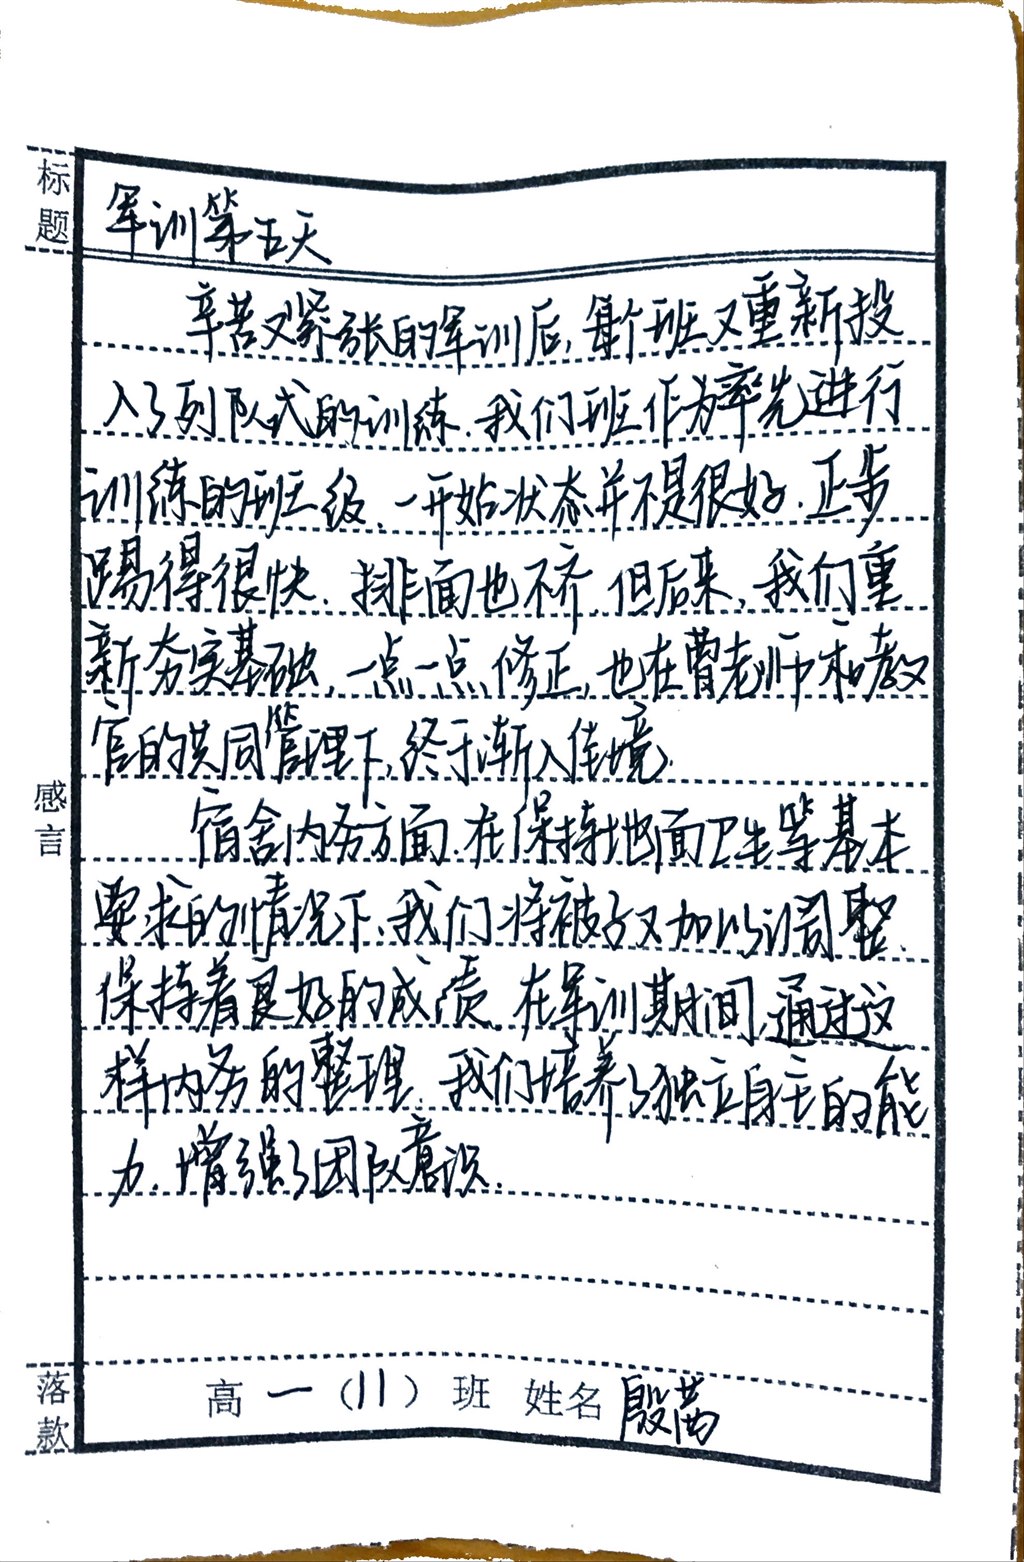 标题
军训第五天
辛苦又紧张的军训后,每个班又重新投
入了列队式的训练.我们班作为率先进行
训练的班级,一开始状态并不是很好.正步
踢得很快.排面也不齐.但后来,我们重
新夯实基础,一点一点修正,也在曹老师和教
官的共同管理下,终于渐入佳境.
感言
宿舍内务方面.在保持地面卫生等基本
要求的情况下,我们将被子又加以调整.
保持着良好的成绩.在军训期间,通过这
样内务的整理.我们培养了独立自主的能
力.增强了团队意识.
落款
高一(11)班 姓名 殷苗